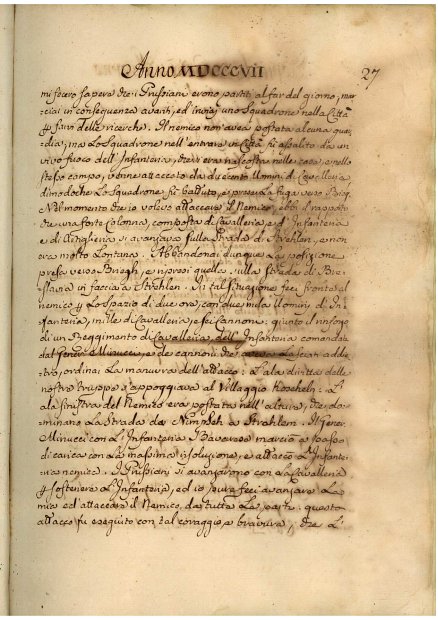 Anno MDCCCVII
27
mi fecero sapere che i Prussiani erono partiti al far del giorno; mar
ciai in conseguenza avanti, ed inviai uno Squadrone nella Città
p fare delle ricerche. Il nemico non avea postata alcuna guar
dia; ma lo Squadrone nell'entrare in Città fù assalito da un
vivo fuoco dell'Infanteria, che si era nascosta nelle case, e nello
stesso tempo, venne attaccato da duecento Uomini di Cavalleria
dimodoche lo Squadrone fù battuto, e prese la fuga verso Brieg
Nel momento che io volevo attaccare il Nemico, ebbi il rapporto
che una forte Colonna, composta di Cavalleria, ed Infanteria
e di Artiglieria si avanzava sulla Strada di Strehlen, e non
era molto lontana. Abbandonai dunque la posizione
presa verso Briegh, e ripresi quella sulla Strada di Bre
slavia in faccia a Strehlen. In tal situazione feci fronte al
nemico p lo spazio di due ore, con due mila Uomini di In
fanteria, mille di Cavalleria, e sei Cannoni: giunto il rinforzo
di un Reggimento di Cavalleria, dell'Infanteria comandata
dal General Minucci, e de cannoni che avea lasciati addie
tro, ordinai la manuvra dell'attacco. L'ala diritta delle
nostre truppe s'appoggiava al Villaggio Koscheln: L'
ala sinistra del Nemico era postata nell'alture, che do
minano la Strada da Nimptsch a Strahlen. Il General
Minucci con l'Infanteria Bavarese marciò a passo
di carica con la massima risoluzione, e attaccò l'Infante
ria nemica. I Prussiani si avanzarono con la Cavalleria
p sostenere l'Infanteria, ed io pure feci avanzare la
mia ed attaccare il Nemico da tutte le parti: questo
attacco fu eseguito con tal coraggio, e bravura, che l'